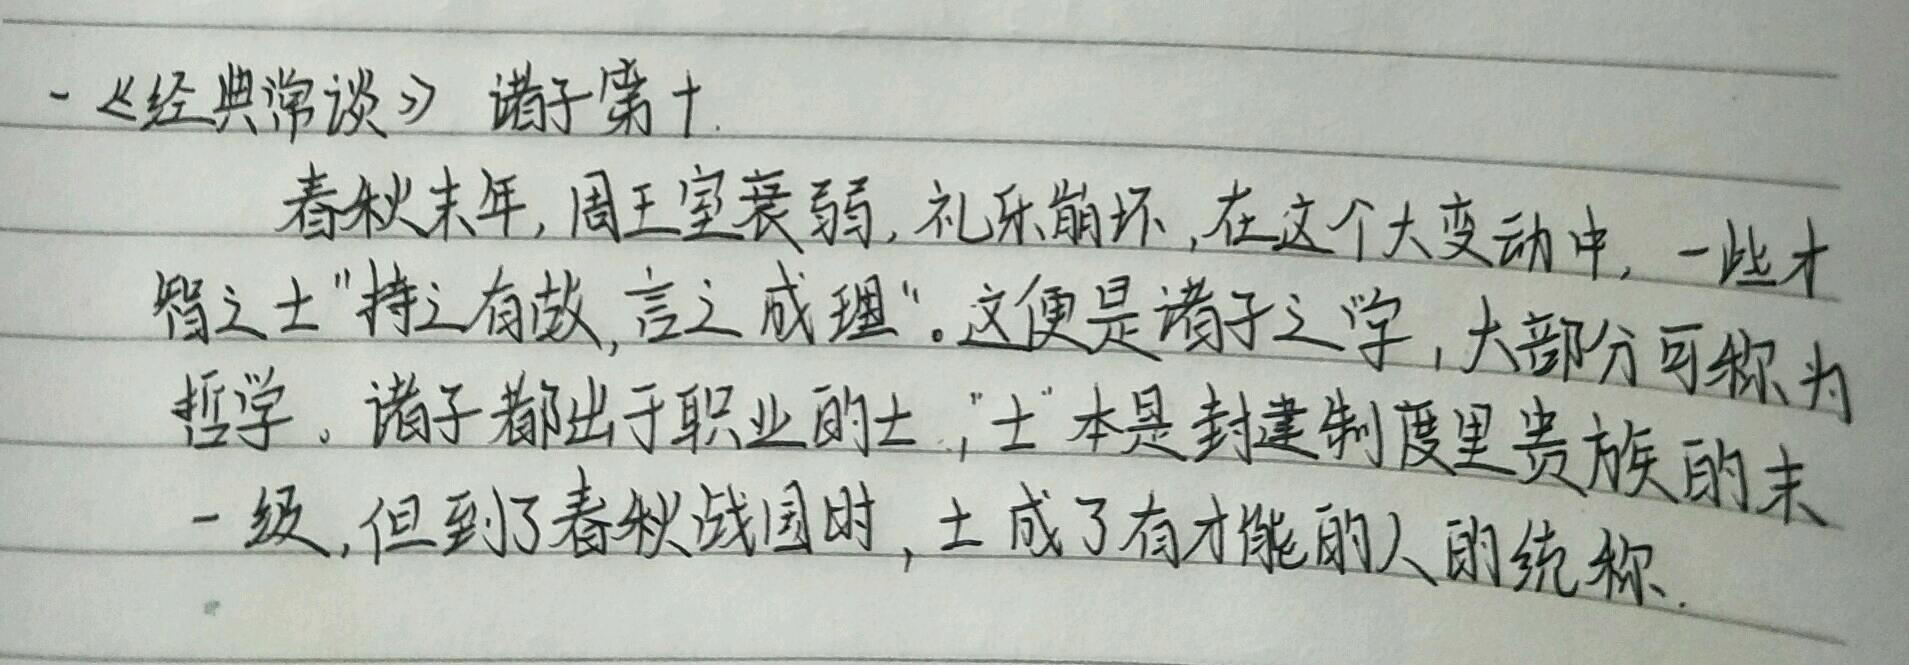 -《经典常谈》 诸子第十.
春秋末年,周王室衰弱,礼乐崩坏,在这个大变动中,一些才
智之士"持之有故,言之成理"。这便是诸子之学,大部分可称为
哲学。诸子都出于职业的士,"士"本是封建制度里贵族的末
一级,但到了春秋战国时,士成了有才能的人的统称.